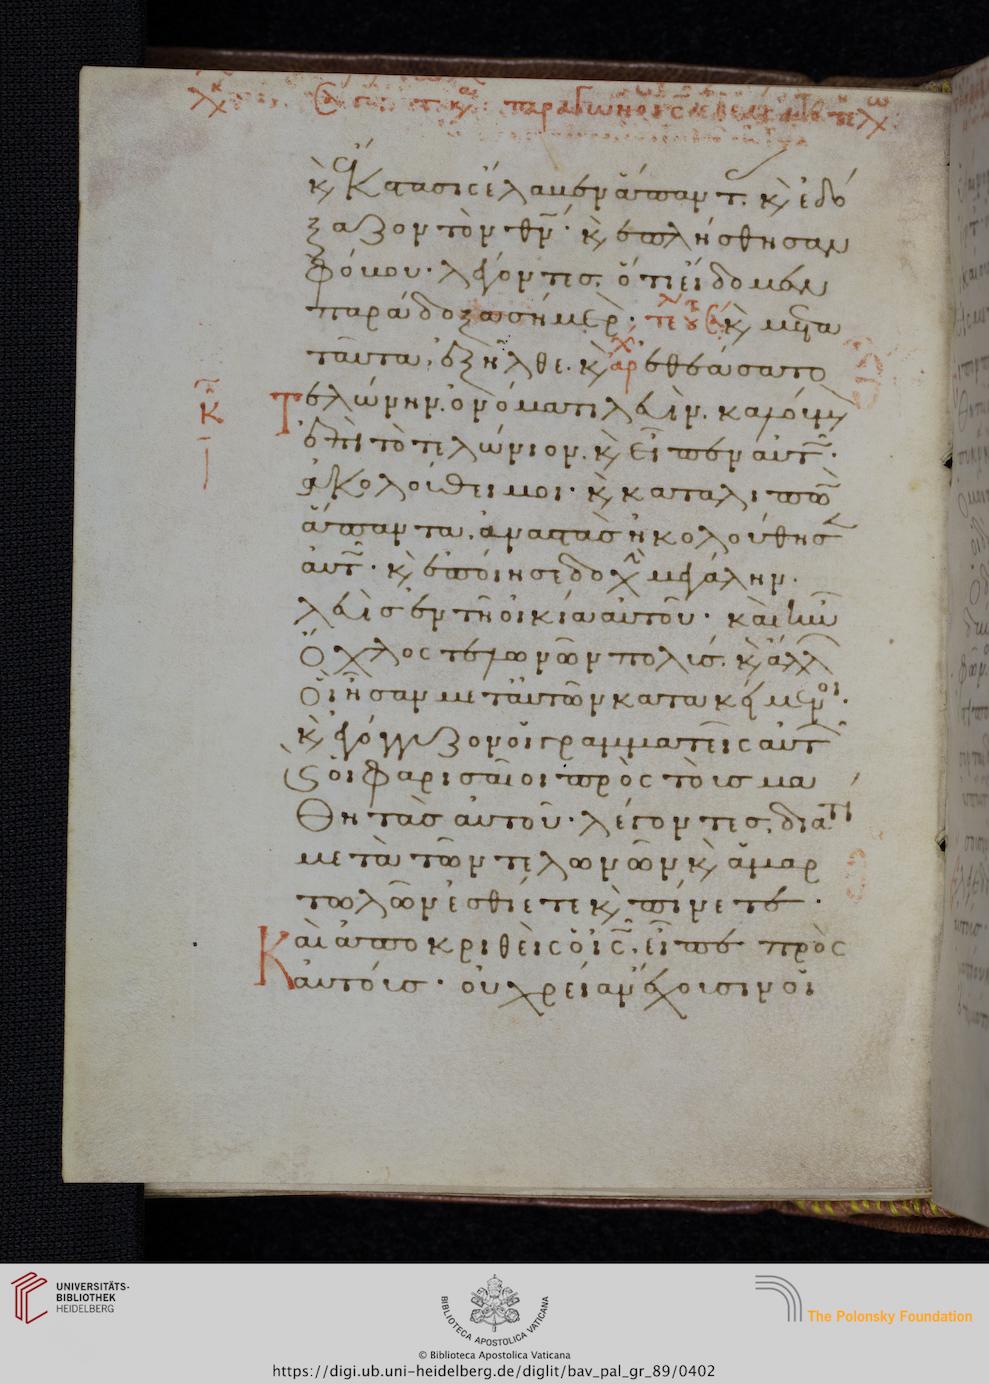 κ(αὶ) ἔκστασις ἔλαβεν ἅπαντ(ας). κ(αὶ) ἐδό
ξαζον τὸν θν̄· κ(αὶ) ἐπλήσθησαν
φόβου· λέγοντες. ὅτι εἴδομεν
παράδοξα σήμερ(ον)· τελ κ(αὶ) μετα
ταῦτα ἐξῆλθε. κ(αὶ) ἀρχ ἐθεάσατο
Τελώνην ὀνόματι λευίν. καθήμ(εν)
ἐπὶ τὸ τελώνιον. κ(αὶ) εἶπεν αὐτῷ·
ἀκολούθει μοι· κ(αὶ) καταλιπὼ(ν)
ἅπαντα. ἀναστὰς ἠκολούθησεν
αὐτῷ· κ(αὶ) ἐποίησε δοχὴν μεγάλην.
λευὶς ἐν τῇ οἰκία αὐτοῦ· καὶ ἦν
ὄχλος τελωνῶν πολύς. κ(αὶ) ἄλλ(ων)
οἳ ἦσαν μετ αὐτῶν κατακείμενοι.
κ(αὶ) ἐγόγγυζον οἱ γραμματεῖς αὐτῶν
κ(αὶ) οἱ φαρισαῖοι πρὸς τοὺς μα
θητὰς αὐτοῦ· λέγοντες. διατί
μετὰ τῶν τελωνῶν κ(αὶ) ἁμαρ
τωλῶν ἐσθίετε κ(αὶ) πίνετε·
Καὶ ἀποκριθεὶς ὁ ις̄. εἶπε πρὸς
αὐτούς· οὐ χρείαν ἔχουσιν οἱ
UNIVERSITÄTS-
BIBLIOTHEK
HEIDELBERG
BIBLIOTECA APOSTOLICA VATICANA
The Polonsky Foundation
© Biblioteca Apostolica Vaticana
https://digi.ub.uni-heidelberg.de/diglit/bav_pal_gr_89/0402